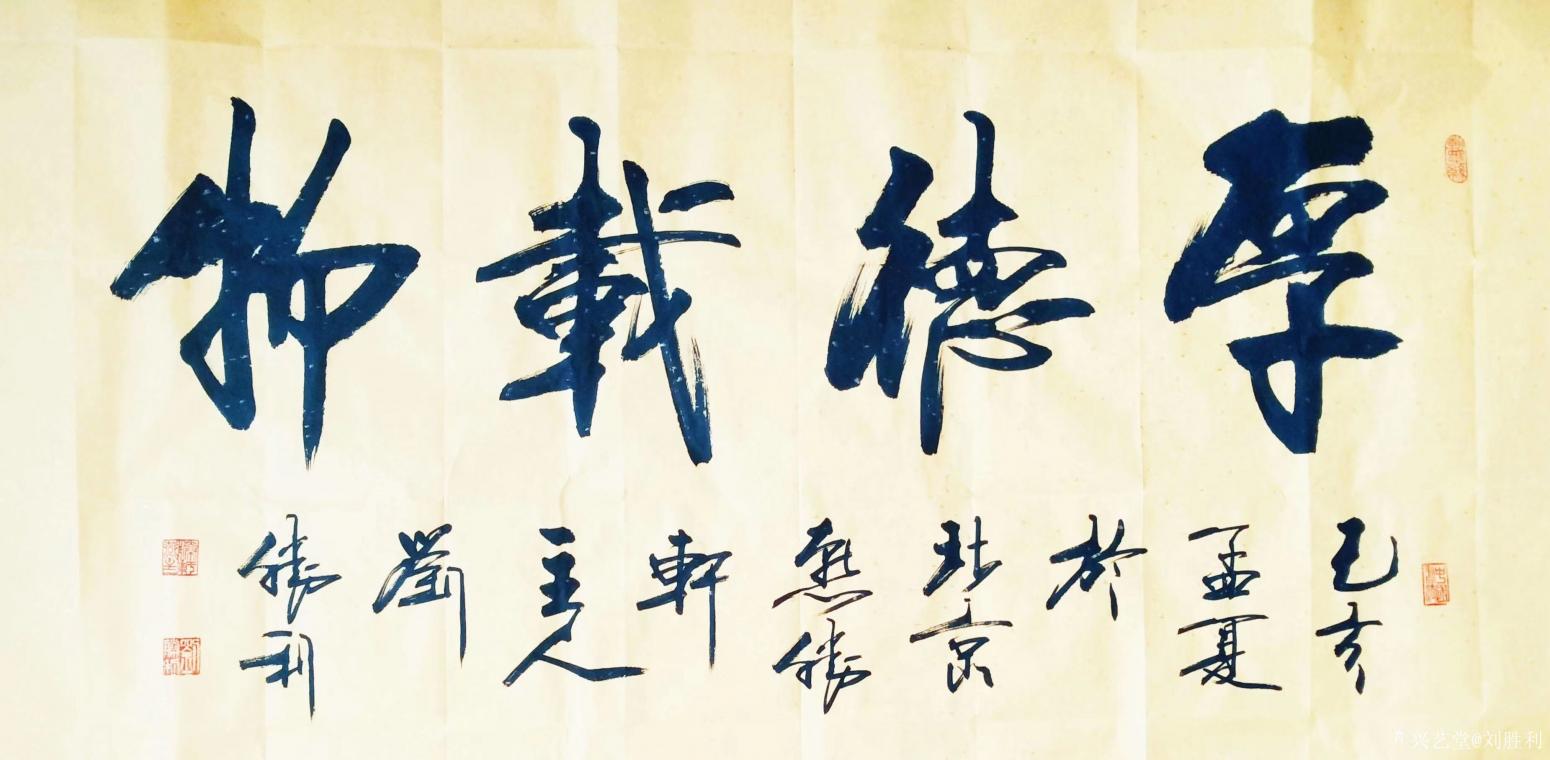 厚德載物
己亥
孟夏
於
北京
勝
軒
主人
劉
勝利
兴艺堂@刘胜利